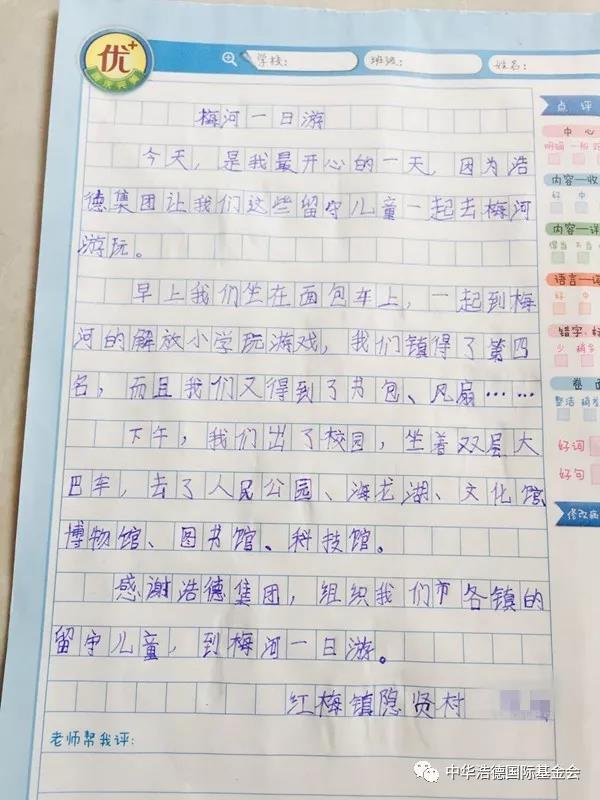 优+
学校：
班级：
姓名：
梅河一日游
今天，是我最开心的一天，因为浩
德集团让我们这些留守儿童一起去梅河
游玩。
早上我们坐在面包车上，一起到梅
河的解放小学玩游戏，我们镇得了第四
名，而且我们又得到了书包、风扇……
下午，我们出了校园，坐着双层大
巴车，去了人民公园、海龙湖、文化馆、
博物馆、图书馆、科技馆。
感谢浩德集团，组织我们市各镇的
留守儿童，到梅河一日游。
红梅镇隐贤村
老师帮我评：
点评
中心
明确 一般
内容—收
好 中
内容—详
得当 不当
语言—通
好 中
错字、标
少 稍多
卷面
整洁 稍差
好词
好句
修改病
中华浩德国际基金会